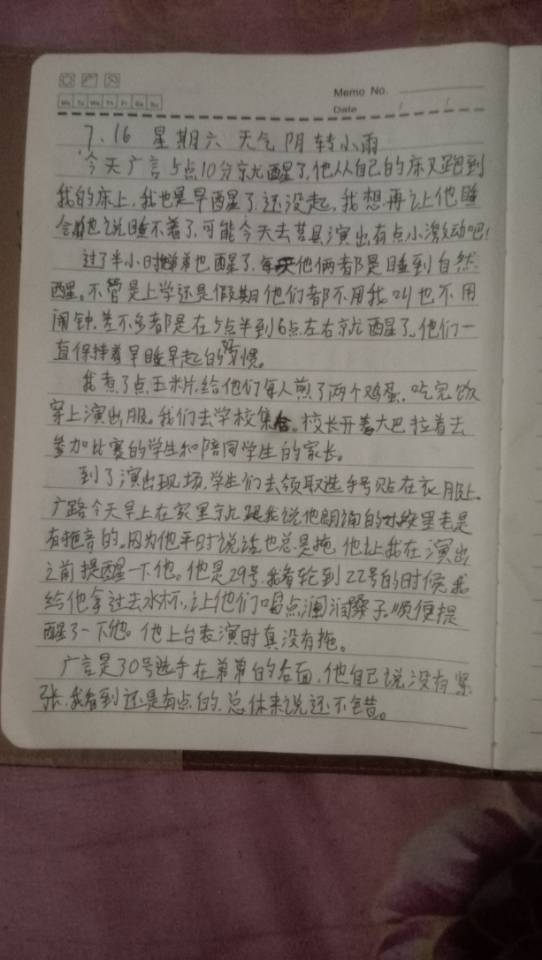 Memo No.
Mo Tu We Th Fr Sa Su
Date / /
7.16 星期六 天气 阴转小雨
今天广言5点10分就醒了,他从自己的床又跑到
我的床上,我也是早醒了,还没起,我想再让他睡
会,他说睡不着了,可能今天去莒县演出有点小激动吧!
过了半小时弟弟也醒了,每天他俩都是睡到自然
醒。不管是上学还是假期他们都不用我叫也不用
闹钟,差不多都是在5点半到6点左右就醒了。他们一
直保持着早睡早起的习惯。
我煮了点玉米片,给他们每人煎了两个鸡蛋,吃完饭
穿上演出服。我们去学校集合。校长开着大巴拉着去
参加比赛的学生和陪同学生的家长。
到了演出现场,学生们去领取选手号贴在衣服上。
广路今天早上在家里就跟我说他朗诵的时候里老是
有拖音的。因为他平时说话也总是拖,他让我在演出
之前提醒一下他。他是29号,我看轮到22号的时候我
给他拿过去水杯,让他们喝点润润嗓子。顺便提
醒了一下他。他上台表演时真没有拖。
广言是30号选手在弟弟的后面,他自己说没有紧
张,我看到还是有点的,总体来说还不错。